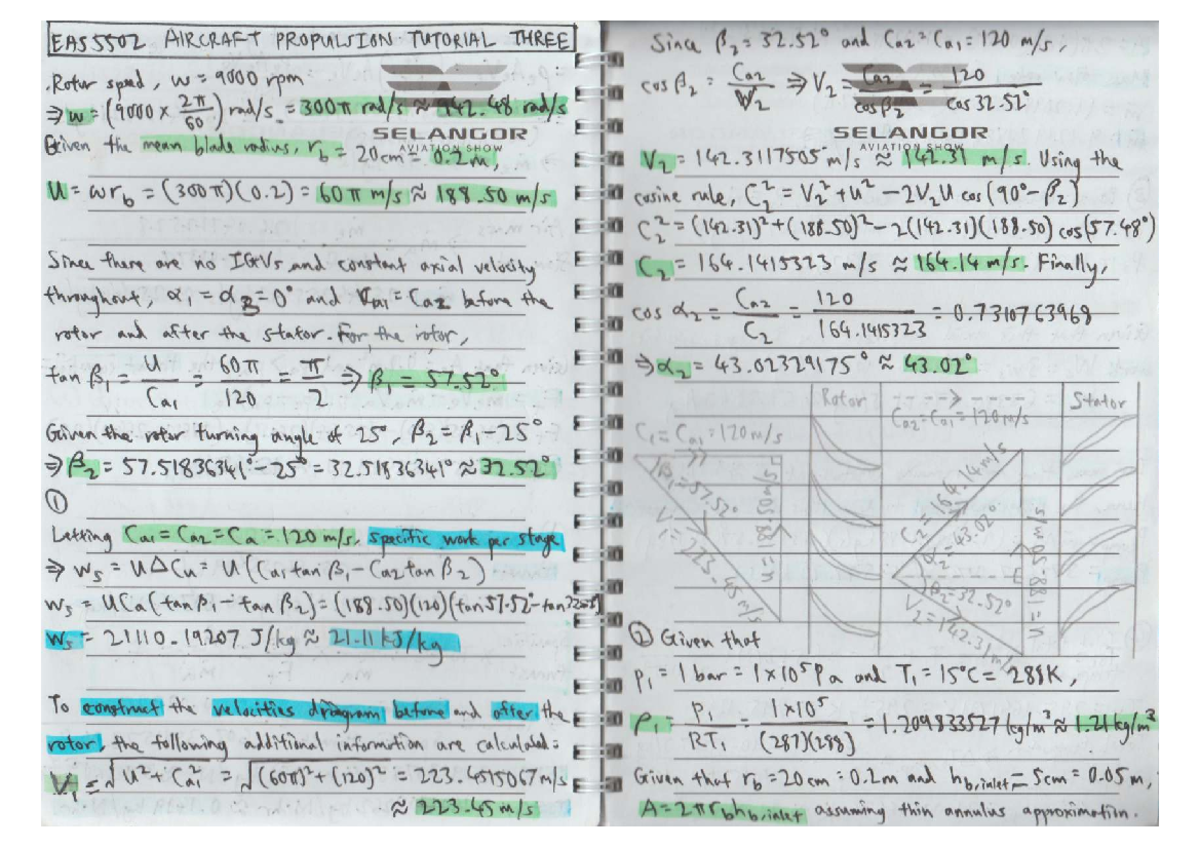 EAS5502 AIRCRAFT PROPULSION TUTORIAL THREE
Rotor speed, ω = 9000 rpm
⇒ ω = (9000 × 2π/60) rad/s = 300π rad/s ≈ 942.48 rad/s
SELANGOR
AVIATION SHOW
Given the mean blade radius, r_b = 20cm = 0.2m,
U = ωr_b = (300π)(0.2) = 60π m/s ≈ 188.50 m/s
Since there are no IGVs and constant axial velocity
throughout, α₁ = α₃ = 0° and Ca₁ = Ca₂ before the
rotor and after the stator. For the rotor,
tan β₁ = U/Ca₁ = 60π/120 = π/2 ⇒ β₁ = 57.52°
Given the rotor turning angle of 25°, β₂ = β₁ - 25°
⇒ β₂ = 57.51836341° - 25° = 32.51836341° ≈ 32.52°
①
Letting Ca₁ = Ca₂ = Ca = 120 m/s, specific work per stage
⇒ w_s = UΔCu = U(Ca₁tan β₁ - Ca₂tan β₂)
w_s = UCa(tan β₁ - tan β₂) = (188.50)(120)(tan 57.52° - tan 32.52°)
w_s = 21110.19207 J/kg ≈ 21.11 kJ/kg
To construct the velocities diagram before and after the
rotor, the following additional information are calculated:
V₁ = √(U² + Ca₁²) = √((60π)² + (120)²) = 223.4515067 m/s
≈ 223.45 m/s
Since β₂ = 32.52° and Ca₂ = Ca₁ = 120 m/s,
cos β₂ = Ca₂/V₂ ⇒ V₂ = Ca₂/cos β₂ = 120/cos 32.52°
SELANGOR
AVIATION SHOW
V₂ = 142.3117505 m/s ≈ 142.31 m/s. Using the
cosine rule, C₂² = V₂² + U² - 2V₂U cos(90° - β₂)
C₂² = (142.31)² + (188.50)² - 2(142.31)(188.50) cos(57.48°)
C₂ = 164.1415323 m/s ≈ 164.14 m/s. Finally,
cos α₂ = Ca₂/C₂ = 120/164.1415323 = 0.7310763968
⇒ α₂ = 43.02329175° ≈ 43.02°
Rotor
Stator
Ca₂ = Ca₁ = 120 m/s
C₁ = Ca₁ = 120 m/s
β₁ = 57.52°
U = 188.50 m/s
V₁ = 223.45 m/s
C₂ = 164.14 m/s
α₂ = 43.02°
β₂ = 32.52°
V₂ = 142.31 m/s
U = 188.50 m/s
② Given that
P₁ = 1 bar = 1×10⁵ Pa and T₁ = 15°C = 288K,
ρ₁ = P₁/RT₁ = 1×10⁵/(287)(288) = 1.209833527 kg/m³ ≈ 1.21 kg/m³
Given that r_b = 20 cm = 0.2m and h_b,inlet = 5cm = 0.05m,
A = 2πr_bh_b,inlet assuming thin annulus approximation.